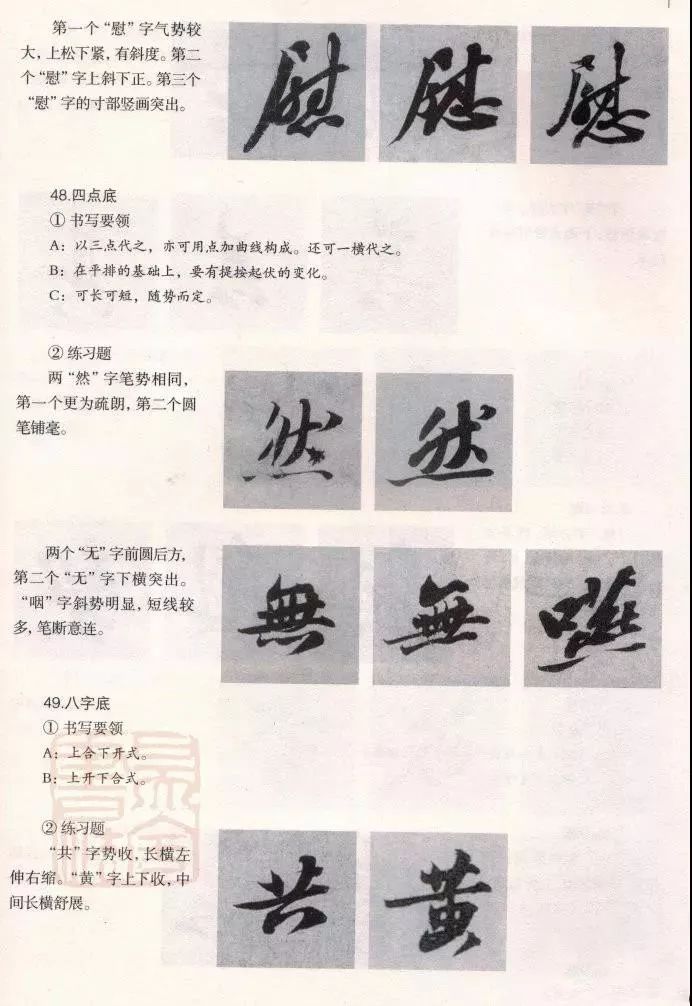 第一个“慰”字气势较
大，上松下紧，有斜度。第二
个“慰”字上斜下正。第三个
“慰”字的寸部竖画突出。
慰 慰 慰
48.四点底
① 书写要领
A：以三点代之，亦可用点加曲线构成。还可一横代之。
B：在平排的基础上，要有提按起伏的变化。
C：可长可短，随势而定。
② 练习题
两“然”字笔势相同，
第一个更为疏朗，第二个圆
笔铺毫。
然 然
两个“无”字前圆后方，
第二个“无”字下横突出。
“咽”字斜势明显，短线较
多，笔断意连。
無 無 嚥
49.八字底
① 书写要领
A：上合下开式。
B：上开下合式。
② 练习题
“共”字势收，长横左
伸右缩。“黄”字上下收，中
间长横舒展。
共 黄